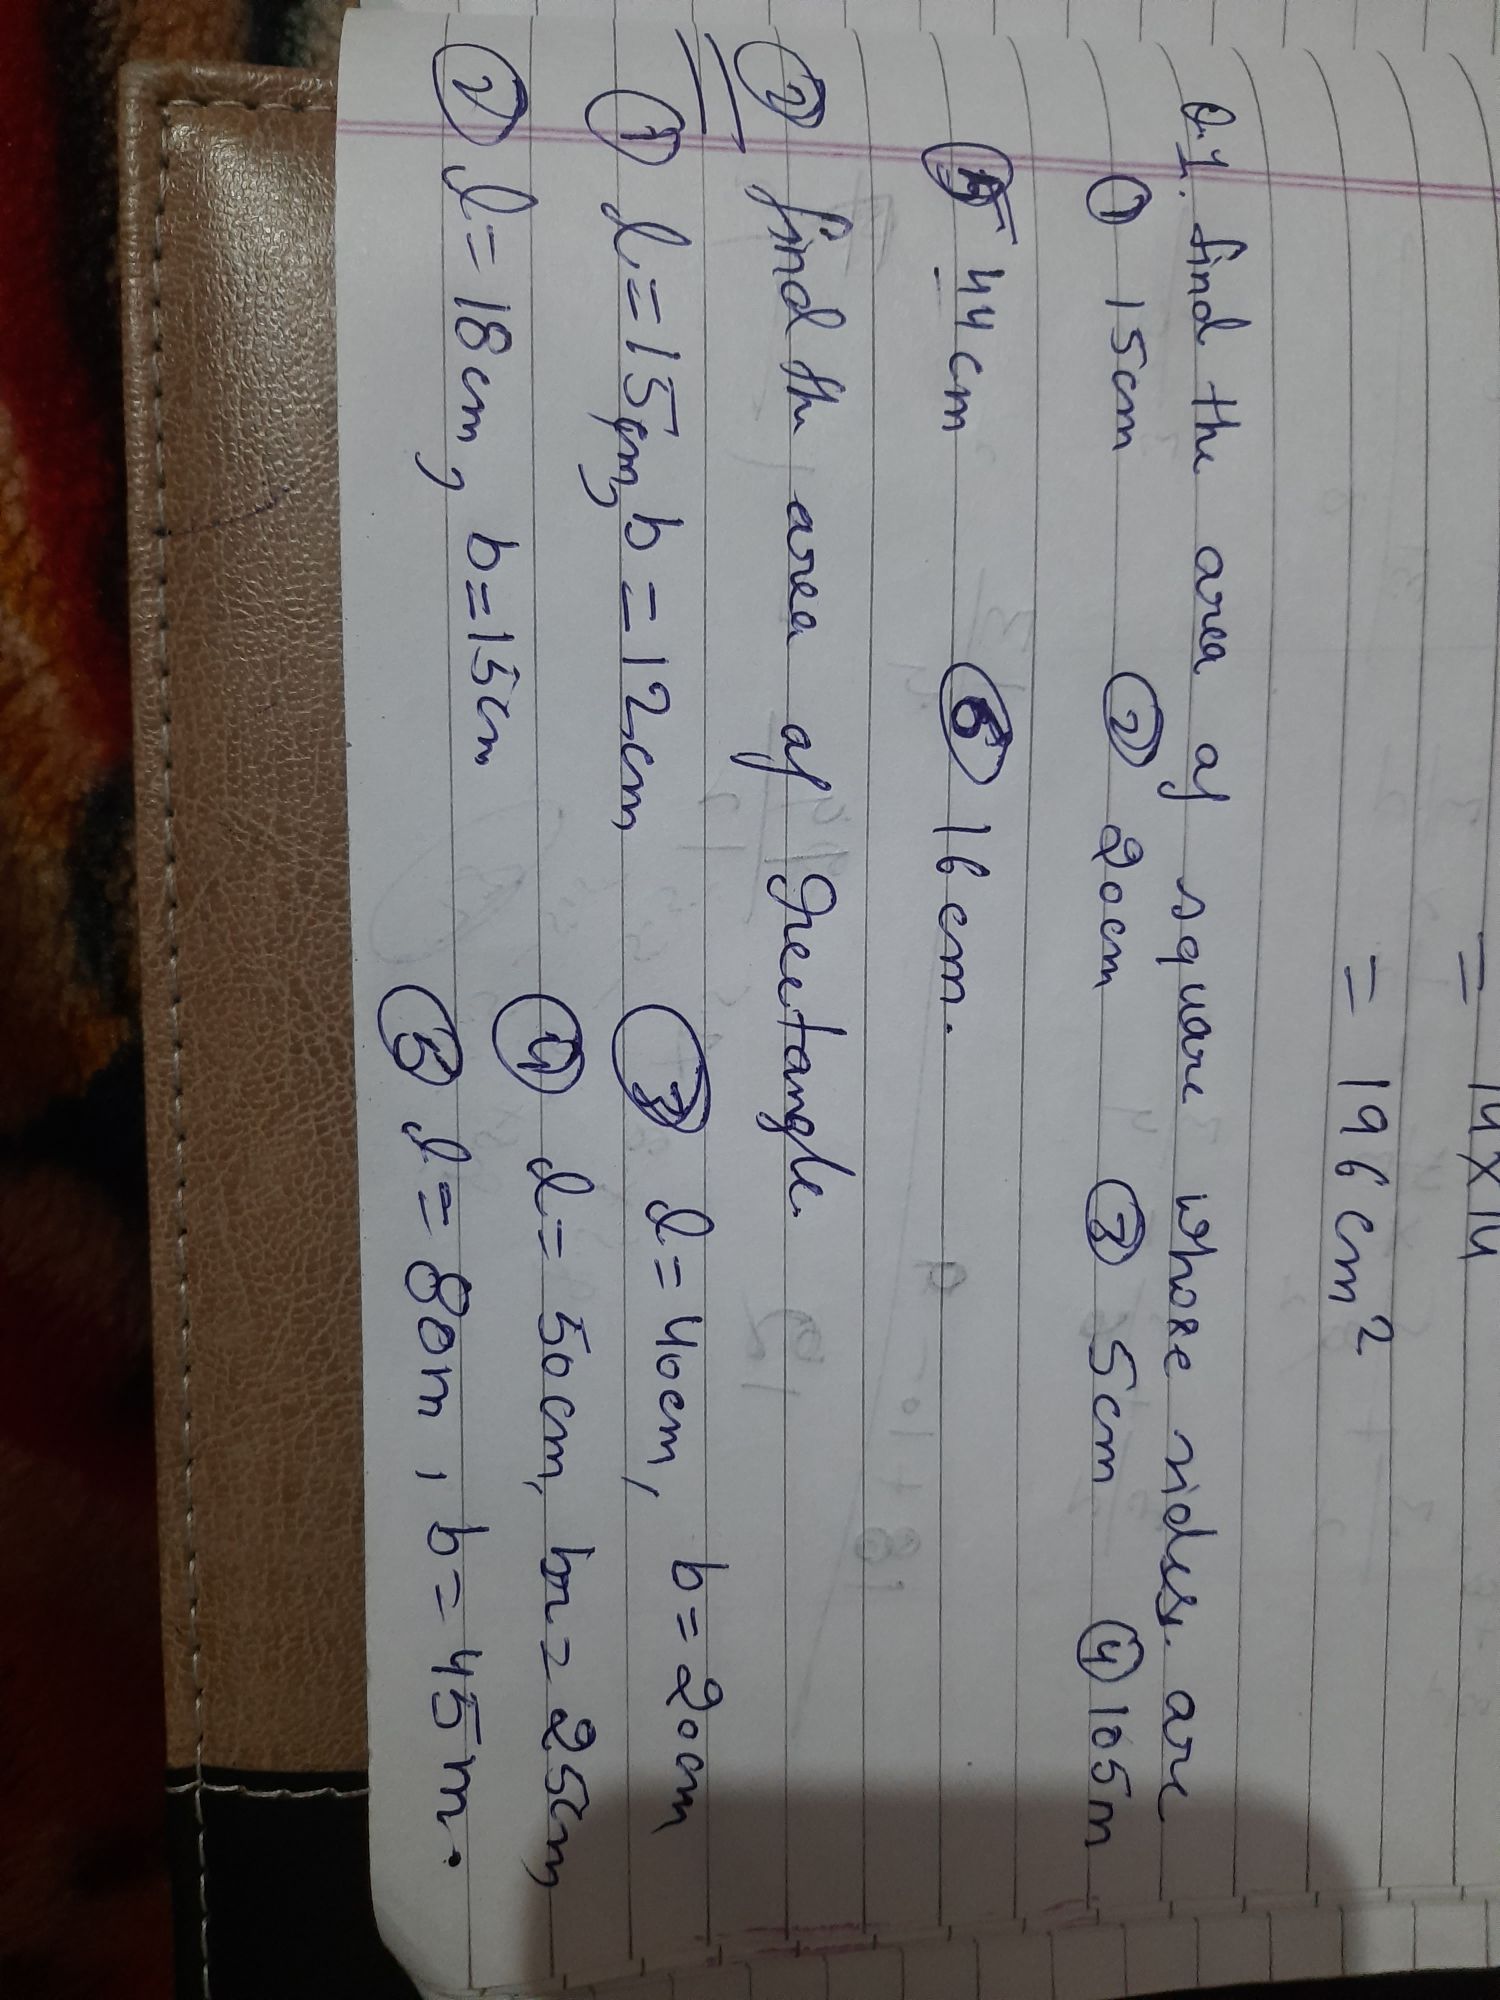 = 14×14
= 196cm²
Q.1. find the area of square whose sides are
① 15cm ② 20cm ③ 5cm ④ 105m
⑤ 44cm ⑥ 16cm.
② find the area of Rectangle.
① l=15cm, b=12cm ③ l=40cm, b=20cm
② l=18cm, b=15cm ④ l=50cm, b=25cm,
⑤ l=80m, b=45m.